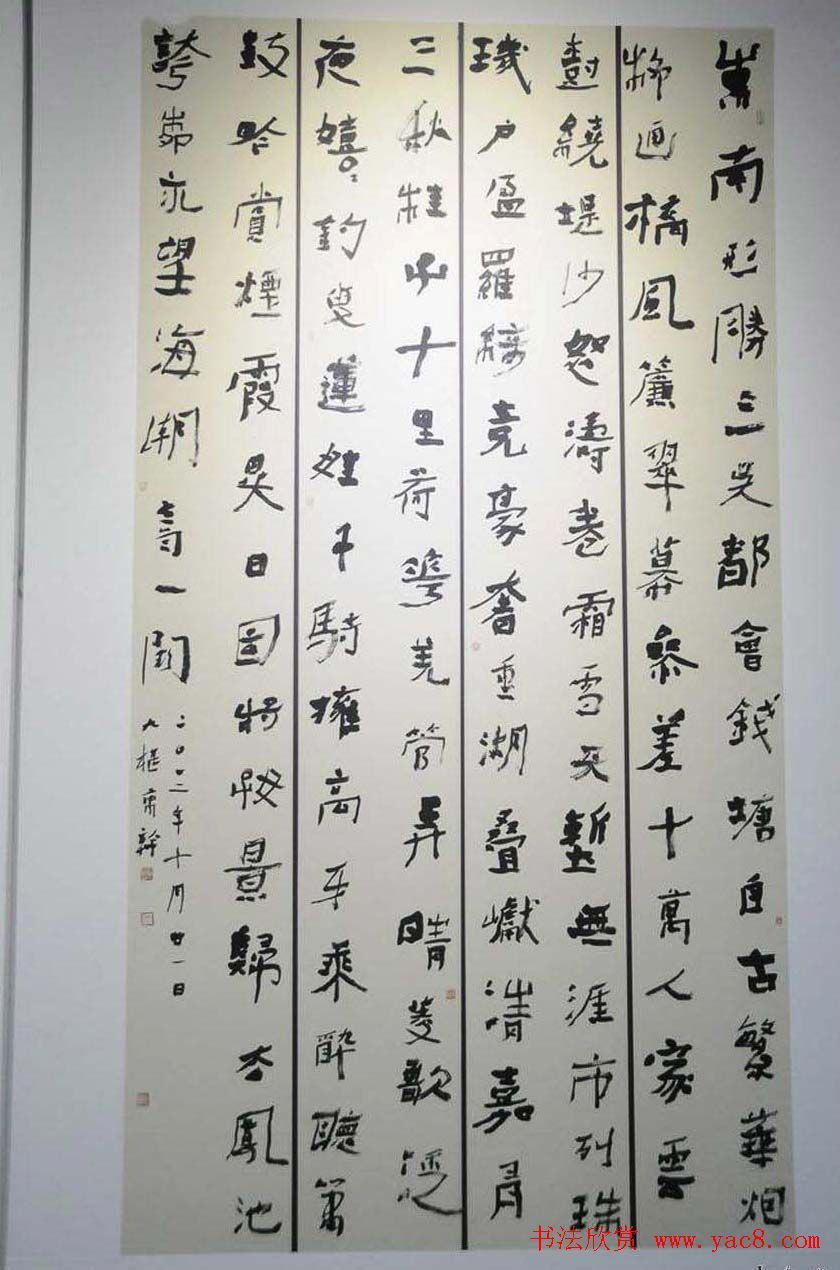 東南形勝三吳都會錢塘自古繁華烟
柳画橋風簾翠幕參差十萬人家雲
樹繞堤沙怒濤卷霜雪天塹無涯市列珠
璣户盈羅綺競豪奢重湖疊巘清嘉有
三秋桂子十里荷華羌管弄晴菱歌泛
夜嬉〻釣叟蓮娃千騎擁高牙乘醉聽簫
鼓吟賞煙霞異日圖將好景歸去鳳池
誇 柳永望海潮詞一闋
二〇〇二年十月廿一日
书法欣赏 www.yac8.com